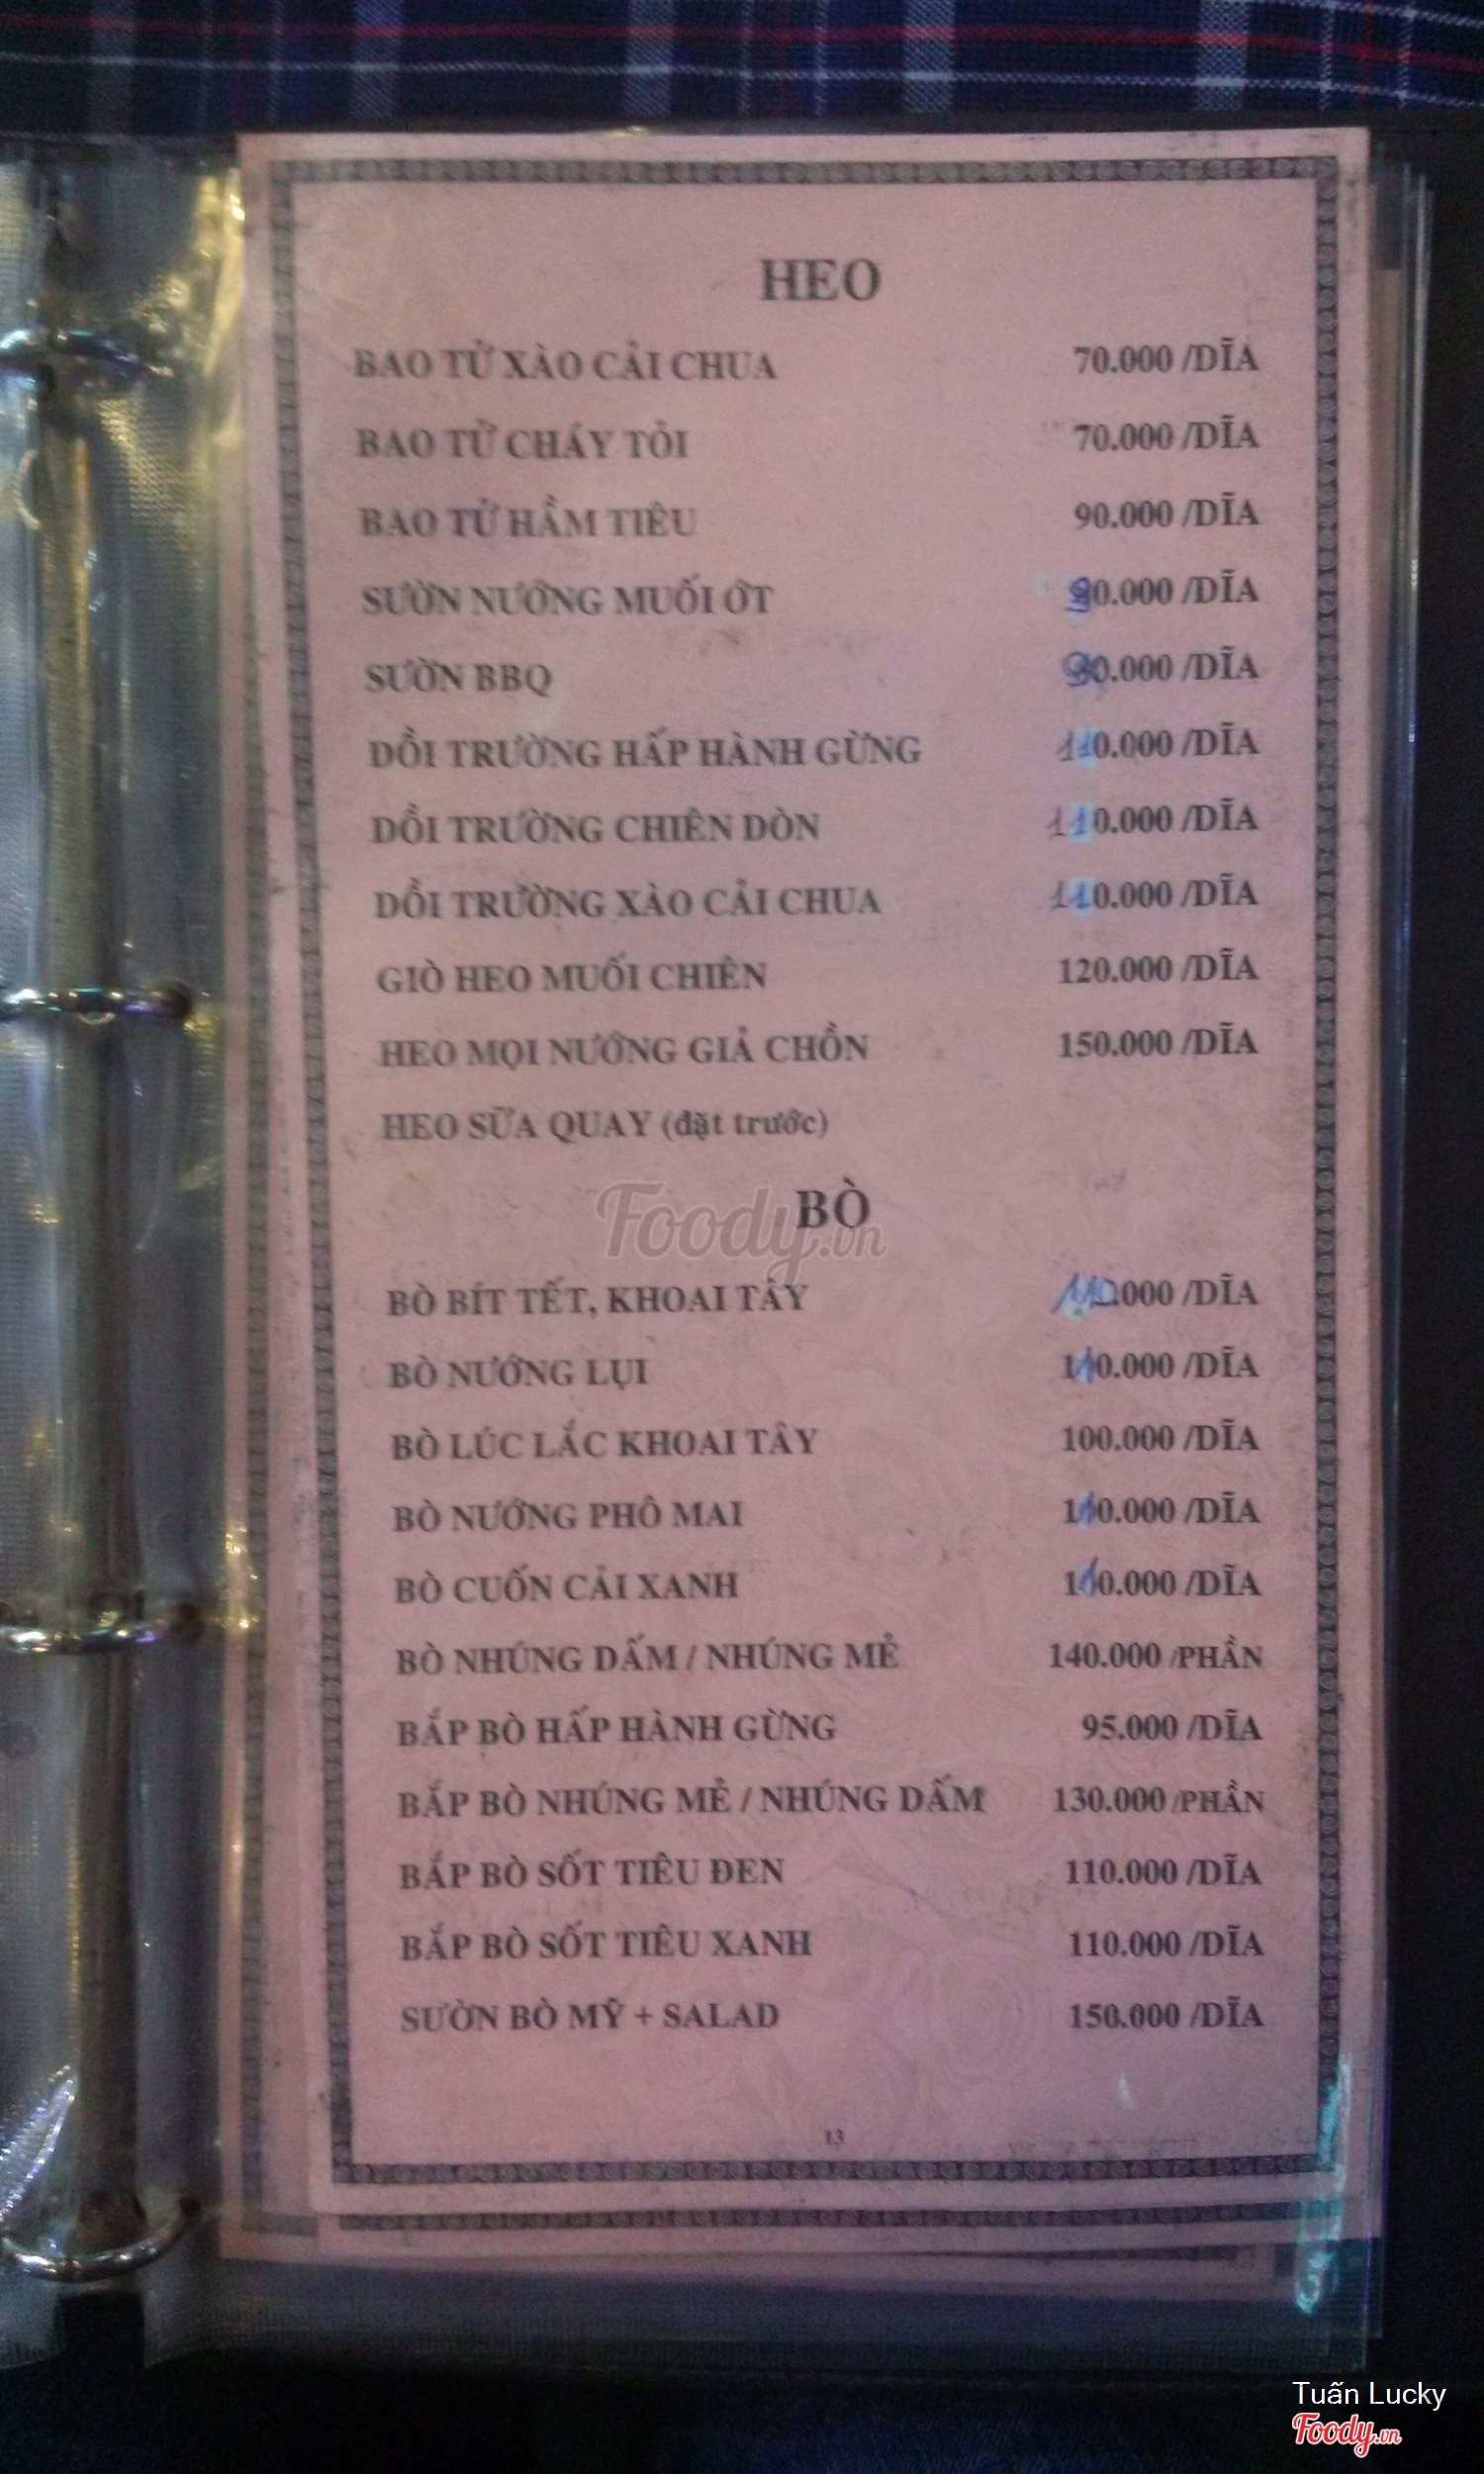 HEO
BAO TỬ XÀO CẢI CHUA 70.000 /DĨA
BAO TỬ CHÁY TỎI 70.000 /DĨA
BAO TỬ HẦM TIÊU 90.000 /DĨA
SƯỜN NƯỚNG MUỐI ỚT 90.000 /DĨA
SƯỜN BBQ 90.000 /DĨA
DỒI TRƯỜNG HẤP HÀNH GỪNG 110.000 /DĨA
DỒI TRƯỜNG CHIÊN DÒN 110.000 /DĨA
DỒI TRƯỜNG XÀO CẢI CHUA 110.000 /DĨA
GIÒ HEO MUỐI CHIÊN 120.000 /DĨA
HEO MỌI NƯỚNG GIẢ CHỒN 150.000 /DĨA
HEO SỮA QUAY (đặt trước)
Foody.vn
BÒ
BÒ BÍT TẾT, KHOAI TÂY 110.000 /DĨA
BÒ NƯỚNG LỤI 110.000 /DĨA
BÒ LÚC LẮC KHOAI TÂY 100.000 /DĨA
BÒ NƯỚNG PHÔ MAI 110.000 /DĨA
BÒ CUỐN CẢI XANH 110.000 /DĨA
BÒ NHÚNG DẤM / NHÚNG MẺ 140.000 /PHẦN
BẮP BÒ HẤP HÀNH GỪNG 95.000 /DĨA
BẮP BÒ NHÚNG MẺ / NHÚNG DẤM 130.000 /PHẦN
BẮP BÒ SỐT TIÊU ĐEN 110.000 /DĨA
BẮP BÒ SỐT TIÊU XANH 110.000 /DĨA
SƯỜN BÒ MỸ + SALAD 150.000 /DĨA
13
Tuấn Lucky
Foody.vn